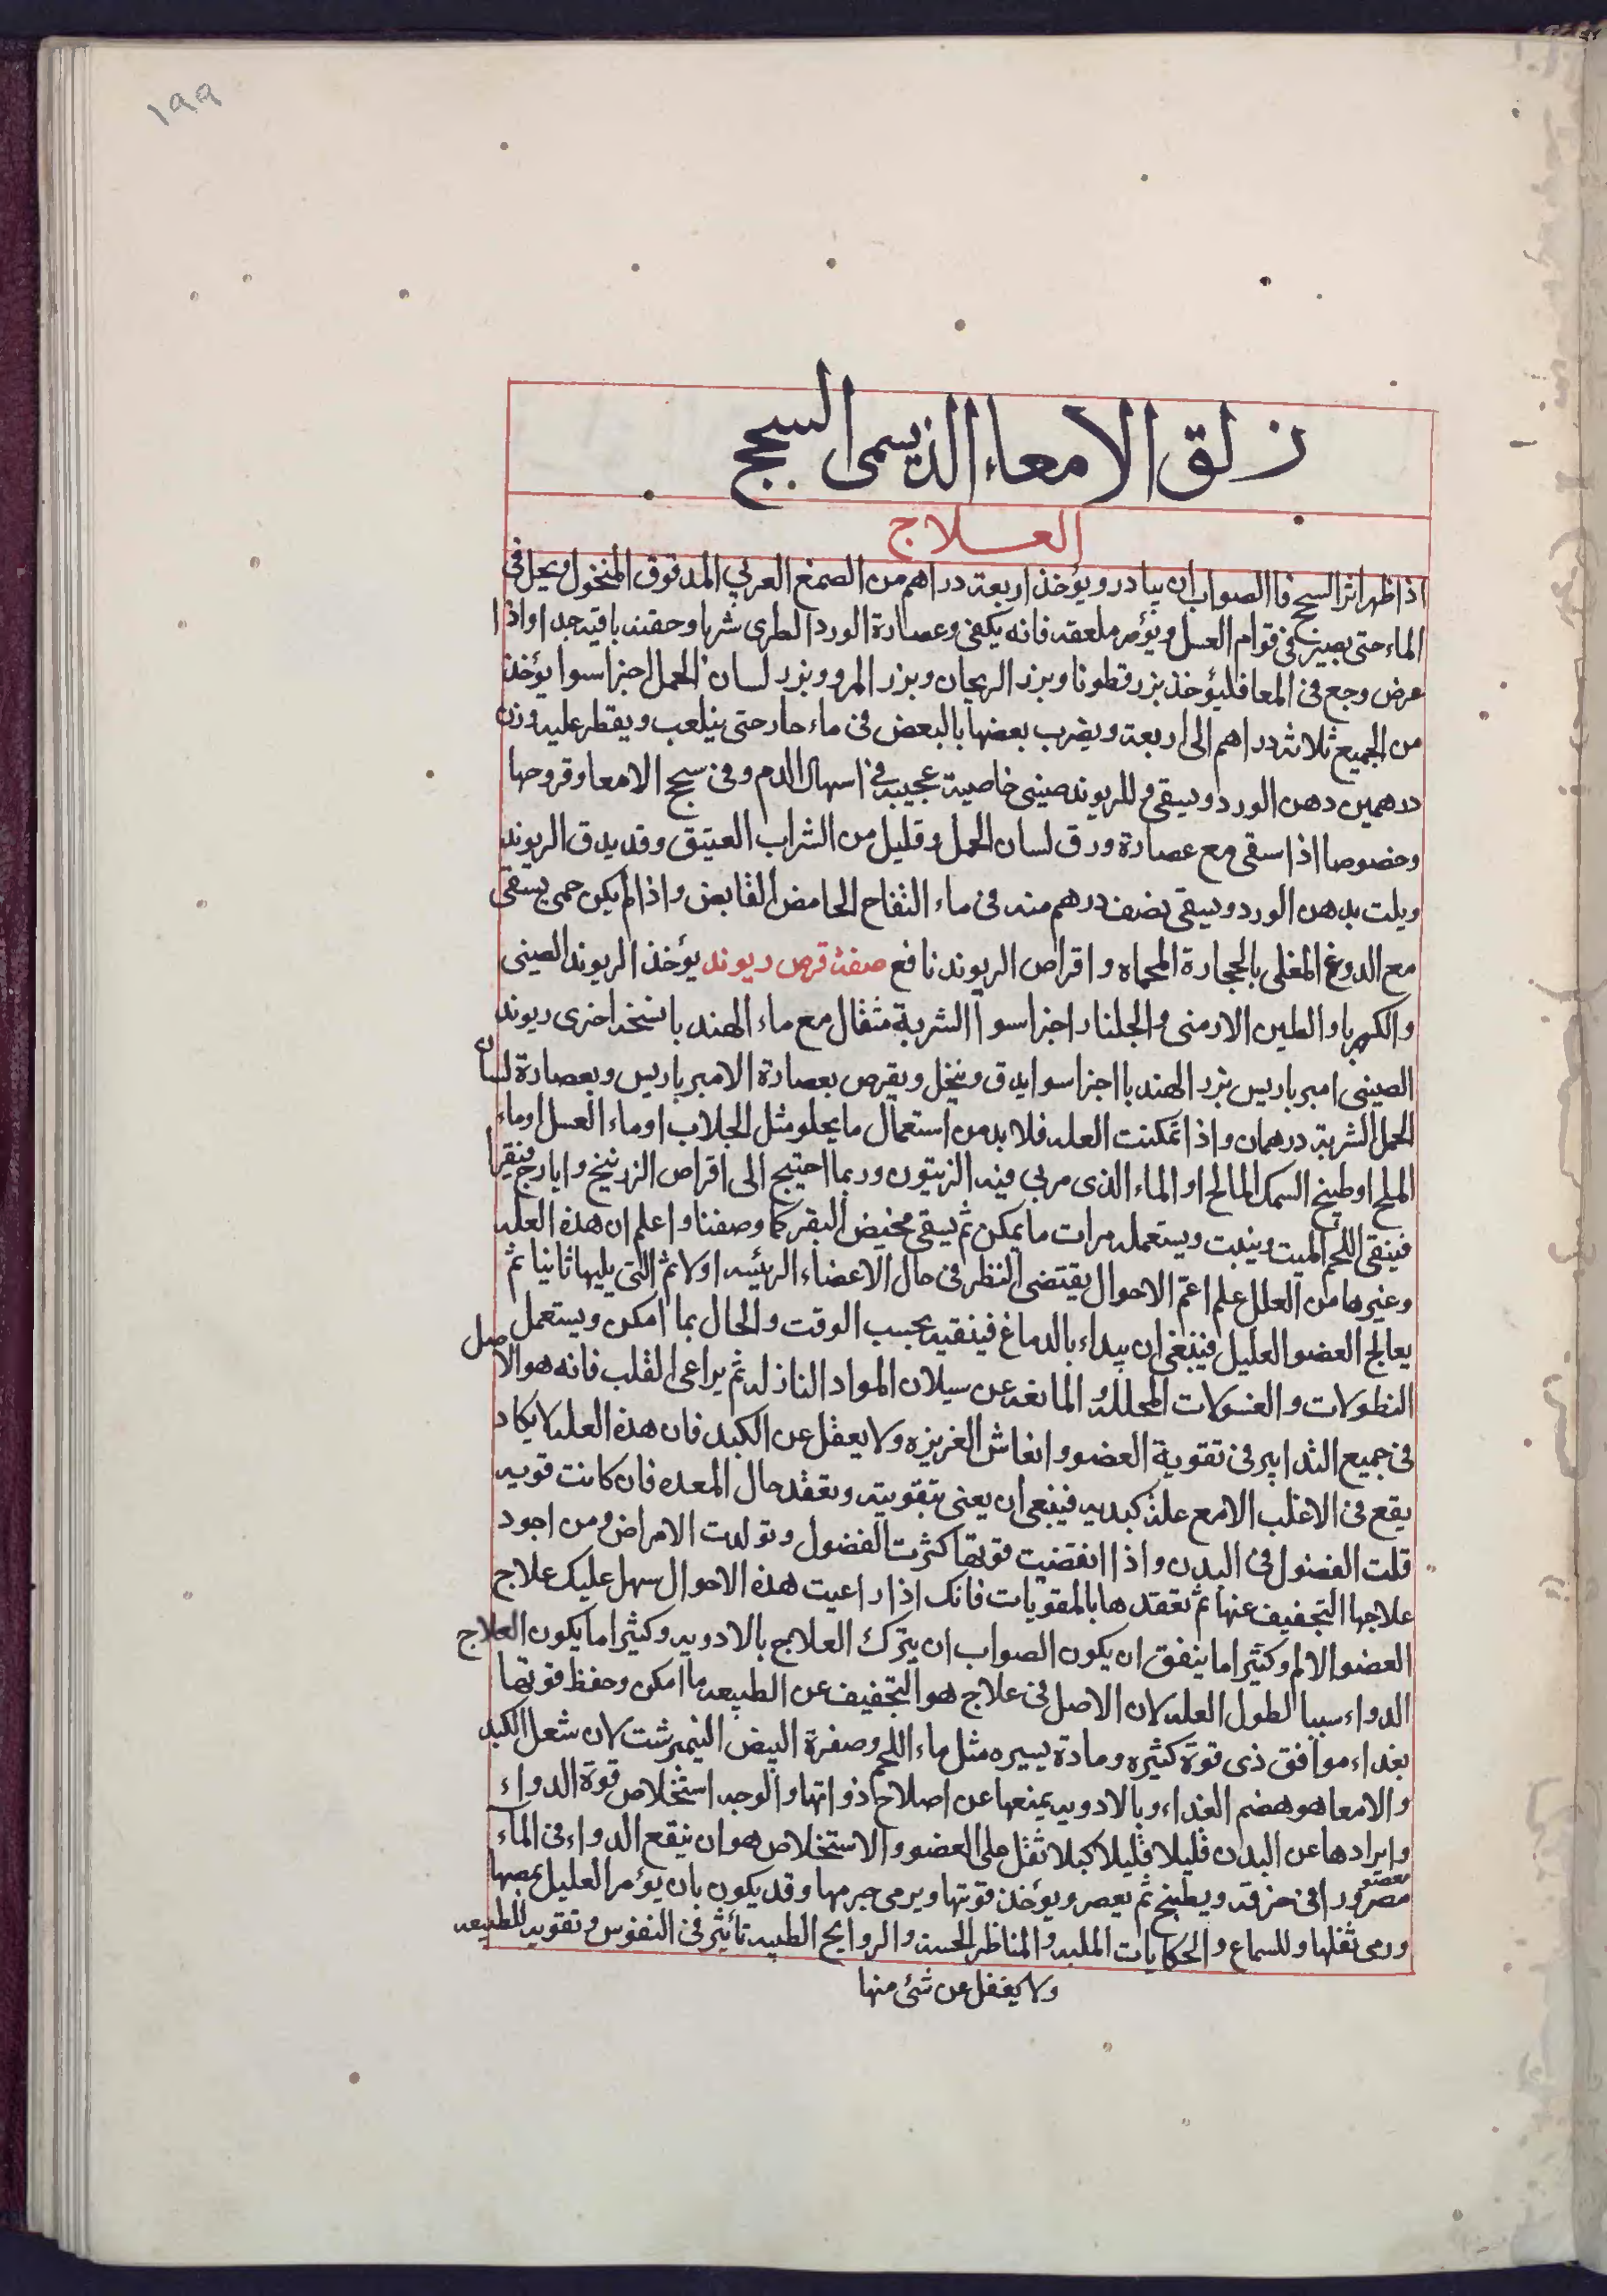 ١٩٩
زلق الامعاء الذي يسمى السحج
العلاج
اذا ظهر اثر السحج فا الصواب ان يبادر ويؤخذ اربعة دراهم من الصمغ العربي المدقوق المنخول ويحل في
الماء حتى يصير في قوام العسل ويؤمر ملعقه فانه يكفي وعصارة الورد الطرى شربا وحقنه باقيه جدا واذا
عرض وجع في المعا فليؤخذ بزر قطونا وبزر الريحان وبزر المرو وبزر لسان الحمل اجزا سوا يؤخذ
من الجميع ثلاثه دراهم الى اربعة ويضرب بعضها بالبعض في ماء حار حتى يتلعب ويقطر عليه وزن
درهمين دهن الورد ويسقى و للريوند صيني خاصية عجيبه في اسهال الدم وفي سحج الامعا وقروحها
وخصوصا اذا سقى مع عصارة ورق لسان الحمل وقليل من الشراب العتيق وقد يدق الريوند
ويلت بدهن الورد ويسقى نصف درهم منه في ماء التفاح الحامض القابض واذا لم يكن حمى يسقى
مع الدوغ المغلى بالحجارة المحماه واقراص الريوند نافع صفة قرص ريوند يؤخذ الريوند الصيني
والكهربا والطين الارمني والجلنار اجزا سوا الشربة مثقال مع ماء الهندبا نسخه اخرى ريوند
الصيني امبرباريس بزر الهندبا اجزا سوا يدق وينخل ويقرص بعصارة الامبرباريس وبعصارة لسان
الحمل الشربة درهمان واذا تمكنت العله فلا بد من استعمال ما يجلو مثل الجلاب او ماء العسل او ماء
الملح او طبيخ السمك المالح او الماء الذي مربى فيه الزيتون وربما احتيج الى اقراص الزرنيخ وايارج فيقرا
فينقى اللحم الميت وينبت ويستعمله مرات ما يمكن ثم يسقى مخيض البقر كما وصفنا واعلم ان هذه العله
وغيرها من العلل علم اعم الاحوال يقتضى النظر في حال الاعضاء الرئيسه اولا ثم التي يليها ثانيا ثم
يعالج العضو العليل فينبغي ان يبداء بالدماغ فينقيه بحسب الوقت والحال بما امكن ويستعمل
النطولات والغسولات المحللة المانعه عن سيلان المواد النازله ثم يراعى القلب فانه هو الاصل
في جميع التدابير في تقوية العضو وانعاش الغريزه ولا يعفل عن الكبد فان هذه العله لا يكاد
يقع في الاغلب الا مع علة كبديه فينبغي ان يعنى بتقويته وتعقد حال المعده فان كانت قويه
قلت الفضول في البدن واذا انقضيت قوتها كثرت الفضول وتولدت الامراض ومن اجود
علاجها التجفيف عنها ثم تعقدها بالمقويات فانك اذا راعيت هذه الاحوال سهل عليك علاج
العضو الالم وكثيرا ما يتفق ان يكون الصواب ان يترك العلاج بالادويه وكثيرا ما يكون العلاج
الدواء سببا لطول العله لان الاصل في علاج هو التجفيف عن الطبيعه ما امكن وحفظ قوتها
بغداء موافق ذى قوة كثيره ومادة يسيره مثل ماء اللحم وصفرة البيض النيمبرشت لان شغل الكبد
والامعا هو هضم الغداء وبالادويه يمنعها عن اصلاح ذواتها والوجه استخلاص قوة الدواء
وايرادها عن البدن قليلا قليلا كيلا تثقل على العضو والاستخلاص هو ان ينقع الدواء في الماء
مصرورا في خرقة ويطبخ ثم يعصر ويؤخذ قوتها ويرمى جرمها وقد يكون بان يؤمر العليل بمصها
ورمى ثفلها وللسماع والحكايات الملبه والمناظر الحسنه والروايح الطيبه تأثير في النفوس وتقويه للطبيعه
ولا يغفل عن شئ منها